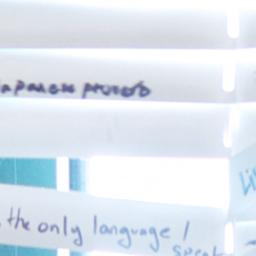 Japanese proverb
the only language I
speak